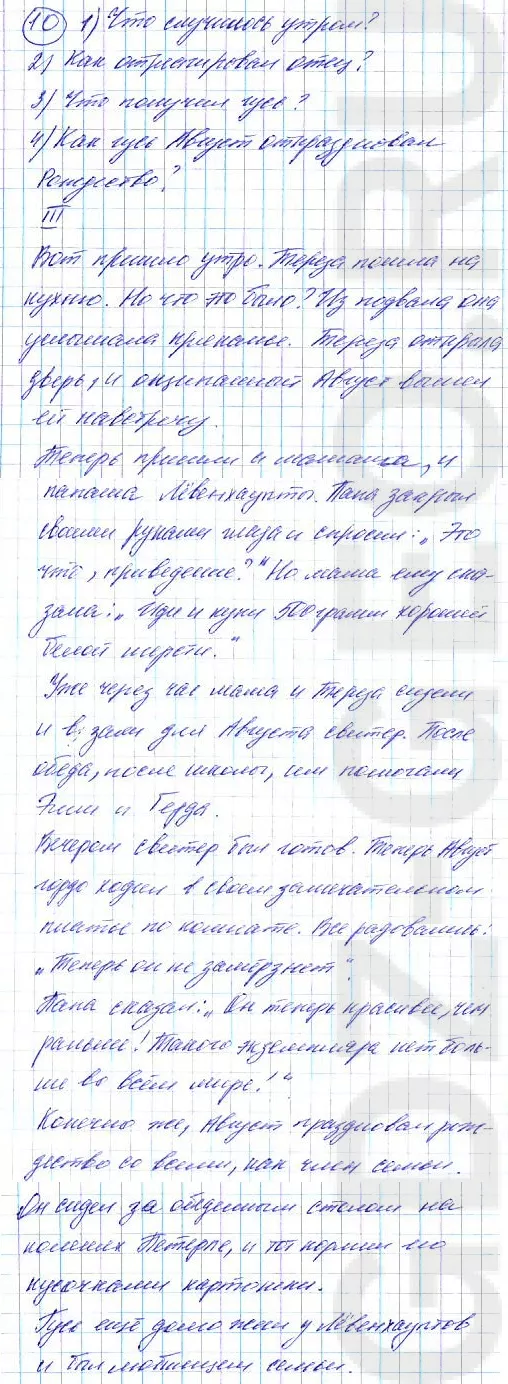 10 1) Что случилось утром?
2) Как отреагировал отец?
3) Что получил гусь?
4) Как гусь Август отпраздновал
Рождество?
III
Вот пришло утро. Тереза пошла на
кухню. Но что это было? Из подвала она
услышала гоготанье. Тереза открыла
дверь, и ощипанный Август вышел
ей навстречу.
Теперь пришли и мамаша, и
папаша Лёвенхаупты. Папа закрыл
своими руками глаза и спросил: „Это
что, приведение?" Но мама ему ска-
зала: „Иди и купи 500 грамм хорошей
белой шерсти."
Уже через час мама и Тереза сидели
и вязали для Августа свитер. После
обеда, после школы, им помогали
Элли и Герда.
Вечером свитер был готов. Теперь Август
гордо ходил в своем замечательном
платье по комнате. Все радовались:
„Теперь он не замёрзнет".
Папа сказал: „Он теперь красивее, чем
раньше! Такого экземпляра нет боль-
ше во всём мире!"
Конечно же, Август праздновал рож-
дество со всеми, как член семьи.
Он сидел за обеденным столом на
коленях Петерле, и тот кормил его
кусочками картошки.
Гусь ещё долго жил у Лёвенхауптов
и был любимцем семьи.
GDZ-GEO.RU